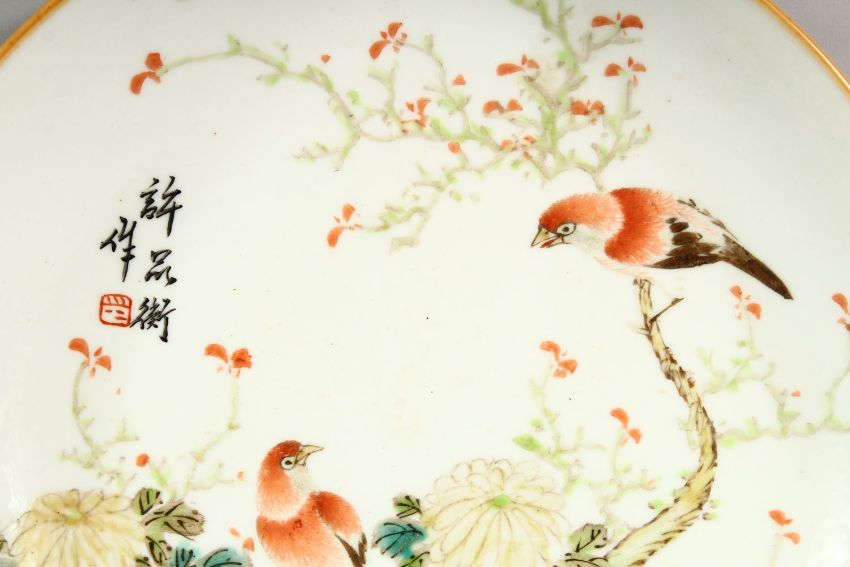 許品衡
作